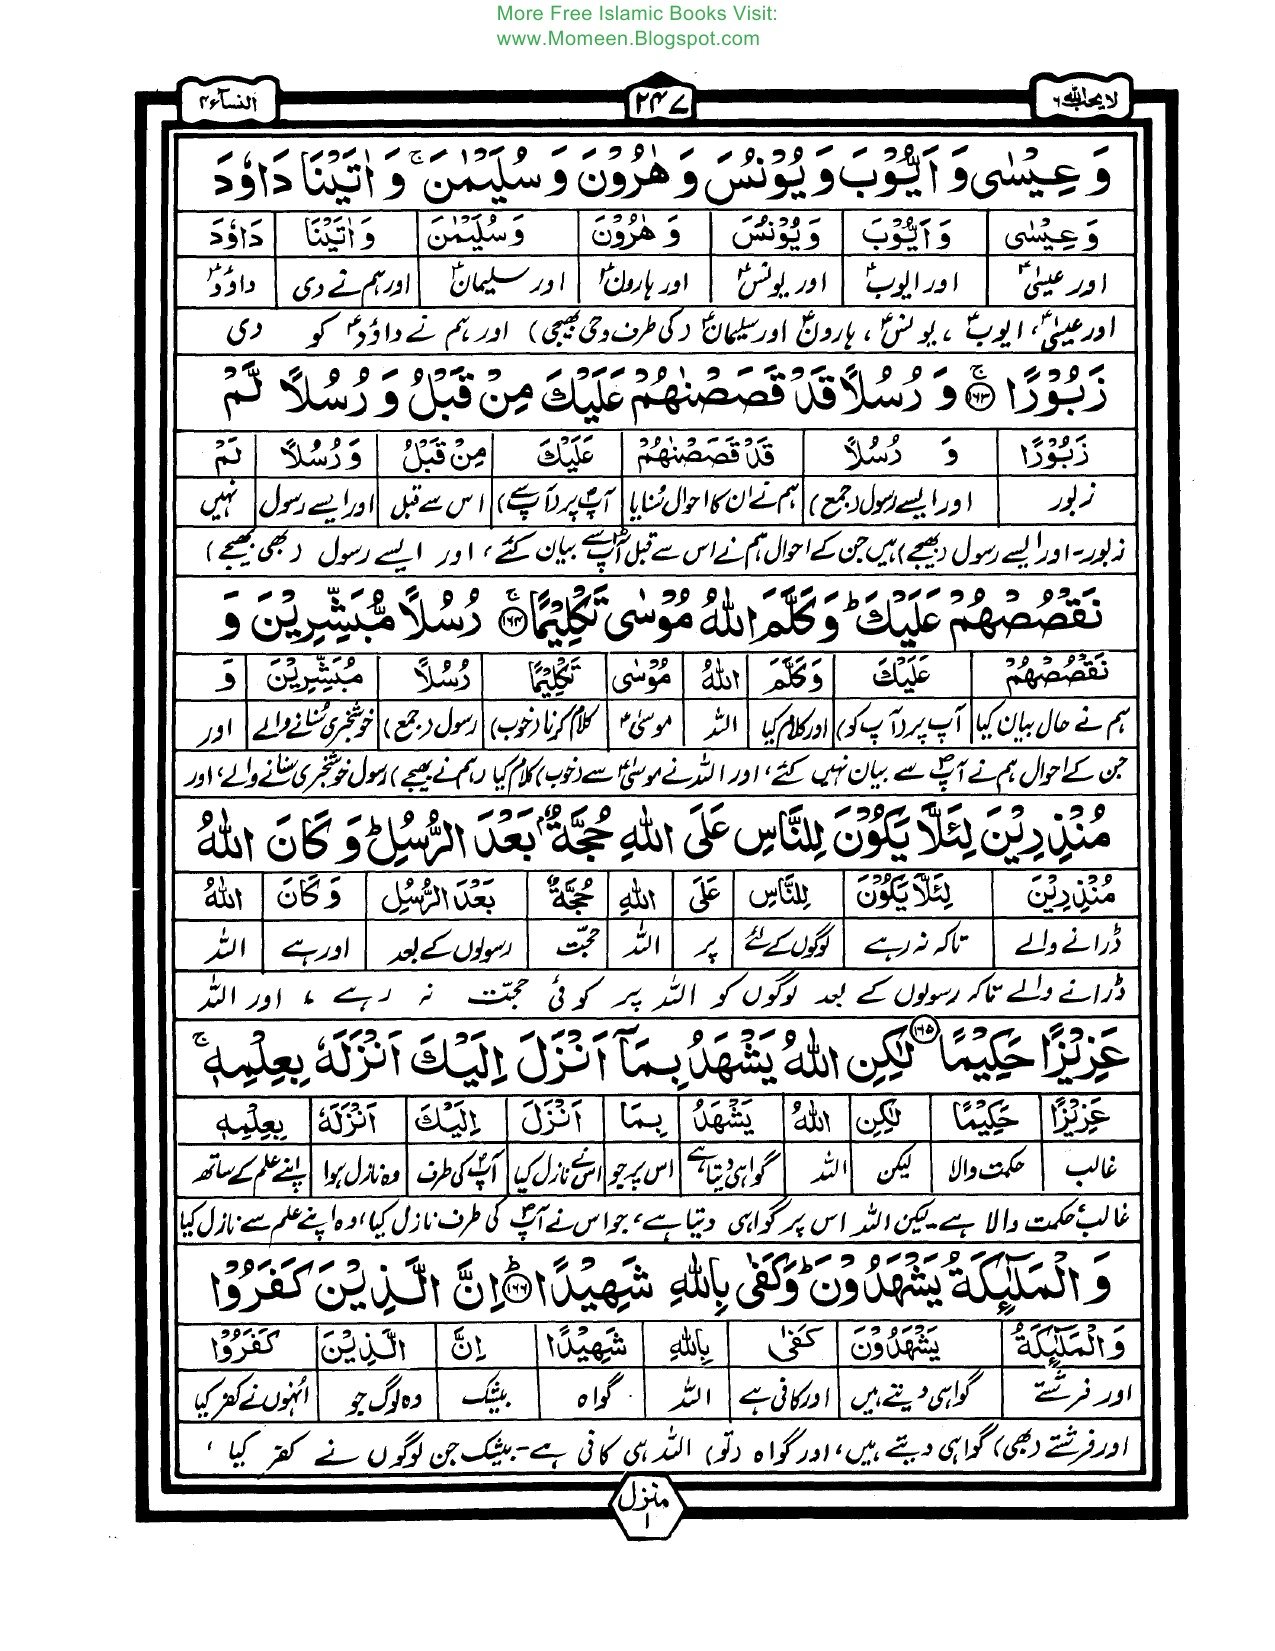 More Free Islamic Books Visit:
www.Momeen.Blogspot.com
لا یحب اللہ ۶
۲۴۷
النسآء ۴
وَ عِیْسٰی وَ اَیُّوْبَ وَ یُوْنُسَ وَ هٰرُوْنَ وَ سُلَیْمٰنَ ۚ وَ اٰتَیْنَا دَاوٗدَ
وَ عِیْسٰی وَ اَیُّوْبَ وَ یُوْنُسَ وَ هٰرُوْنَ وَ سُلَیْمٰنَ وَ اٰتَیْنَا دَاوٗدَ
اور عیسیٰؑ اور ایوبؑ اور یونسؑ اور ہارونؑ اور سلیمانؑ اور ہم نے دی داؤدؑ
اور عیسیٰؑ، ایوبؑ، یونسؑ، ہارونؑ اور سلیمانؑ (کی طرف وحی بھیجی) اور ہم نے داؤدؑ کو دی
زَبُوْرًا ۚ‏﴿۱۶۳﴾ وَ رُسُلًا قَدْ قَصَصْنٰهُمْ عَلَیْكَ مِنْ قَبْلُ وَ رُسُلًا لَّمْ
زَبُوْرًا وَ رُسُلًا قَدْ قَصَصْنٰهُمْ عَلَیْكَ مِنْ قَبْلُ وَ رُسُلًا لَمْ
زبور اور ایسے رسول (جمع) ہم نے ان کا احوال سُنایا آپؐ پر (آپ سے) اس سے قبل اور ایسے رسول نہیں
زبور۔ اور ایسے رسول (بھیجے) ہیں جن کے احوال ہم نے اس سے قبل آپؐ سے بیان کئے، اور ایسے رسول (بھی بھیجے)
نَقْصُصْهُمْ عَلَیْكَ ؕ وَ كَلَّمَ اللّٰهُ مُوْسٰی تَكْلِیْمًا ۚ﴿۱۶۴﴾ رُسُلًا مُّبَشِّرِیْنَ وَ
نَقْصُصْهُمْ عَلَیْكَ وَ كَلَّمَ اللّٰهُ مُوْسٰی تَكْلِیْمًا رُسُلًا مُبَشِّرِیْنَ وَ
ہم نے حال بیان کیا آپ پر (آپ کو) اور کلام کیا اللہ موسیٰؑ کلام کرنا (خوب) رسول (جمع) خوشخبری سُنانے والے اور
جن کے احوال ہم نے آپؐ سے بیان نہیں کئے، اور اللہ نے موسیٰؑ سے (خوب) کلام کیا (ہم نے بھیجے) رسول خوشخبری سنانے والے، اور
مُنْذِرِیْنَ لِئَلَّا یَكُوْنَ لِلنَّاسِ عَلَی اللّٰهِ حُجَّةٌۢ بَعْدَ الرُّسُلِ ؕ وَ كَانَ اللّٰهُ
مُنْذِرِیْنَ لِئَلَّا یَكُوْنَ لِلنَّاسِ عَلَی اللّٰهِ حُجَّةٌ بَعْدَ الرُّسُلِ وَ كَانَ اللّٰهُ
ڈرانے والے تاکہ نہ رہے لوگوں کے لئے پر اللہ حجّت رسولوں کے بعد اور ہے اللہ
ڈرانے والے تاکہ رسولوں کے بعد لوگوں کو اللہ پر کوئی حجّت نہ رہے، اور اللہ
عَزِیْزًا حَكِیْمًا ﴿۱۶۵﴾ لٰكِنِ اللّٰهُ یَشْهَدُ بِمَاۤ اَنْزَلَ اِلَیْكَ اَنْزَلَهٗ بِعِلْمِهٖ ۚ
عَزِیْزًا حَكِیْمًا لٰكِنِ اللّٰهُ یَشْهَدُ بِمَا اَنْزَلَ اِلَیْكَ اَنْزَلَهٗ بِعِلْمِهٖ
غالب حکمت والا لیکن اللہ گواہی دیتا ہے اس پر جو اس نے نازل کیا آپؐ کی طرف وہ نازل ہوا اپنے علم کے ساتھ
غالب، حکمت والا ہے۔ لیکن اللہ اس پر گواہی دیتا ہے، جو اس نے آپؐ کی طرف نازل کیا، وہ اپنے علم سے نازل کیا
وَ الْمَلٰٓئِكَةُ یَشْهَدُوْنَ ؕ وَ كَفٰی بِاللّٰهِ شَهِیْدًا ؕ﴿۱۶۶﴾ اِنَّ الَّذِیْنَ كَفَرُوْا
وَ الْمَلٰٓئِكَةُ یَشْهَدُوْنَ كَفٰی بِاللّٰهِ شَهِیْدًا اِنَّ الَّذِیْنَ كَفَرُوْا
اور فرشتے گواہی دیتے ہیں اور کافی ہے اللہ گواہ بیشک وہ لوگ جو اُنہوں نے کفر کیا
اور فرشتے (بھی) گواہی دیتے ہیں، اور گواہ (تو) اللہ ہی کافی ہے۔ بیشک جن لوگوں نے کفر کیا،
منزل ۱